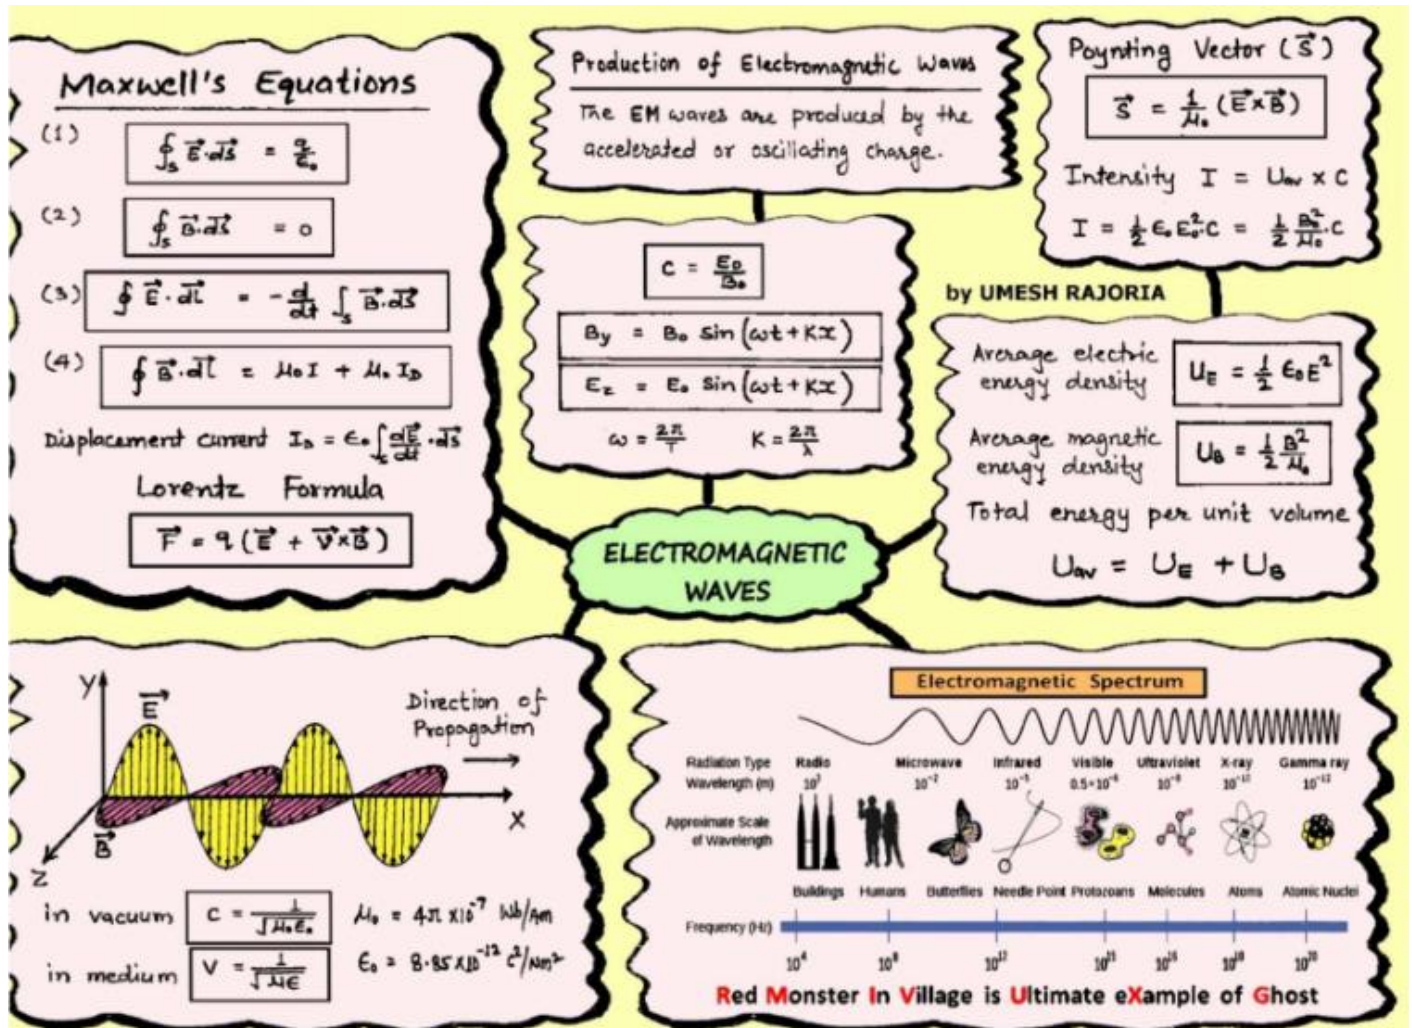 Maxwell's Equations
(1) ∮_S E⃗·dS⃗ = q/ε₀
(2) ∮_S B⃗·dS⃗ = 0
(3) ∮ E⃗·dl⃗ = -d/dt ∫_S B⃗·dS⃗
(4) ∮ B⃗·dl⃗ = μ₀I + μ₀I_D
Displacement current I_D = ε₀∫_S dE⃗/dt·dS⃗
Lorentz Formula
F⃗ = q(E⃗ + V⃗×B⃗)
Production of Electromagnetic Waves
The EM waves are produced by the
accelerated or oscillating charge.
C = E₀/B₀
By = B₀ sin(ωt + Kx)
Ez = E₀ sin(ωt + Kx)
ω = 2π/T K = 2π/λ
Poynting Vector (S⃗)
S⃗ = 1/μ₀ (E⃗×B⃗)
Intensity I = Uav × C
I = 1/2 ε₀E₀²·C = 1/2 B₀²/μ₀·C
by UMESH RAJORIA
Average electric
energy density
U_E = 1/2 ε₀E²
Average magnetic
energy density
U_B = 1/2 B²/μ₀
Total energy per unit volume
Uav = U_E + U_B
ELECTROMAGNETIC
WAVES
Y
E⃗
Direction of
Propagation
X
B⃗
Z
in vacuum C = 1/√μ₀ε₀ μ₀ = 4π×10⁻⁷ Wb/Am
in medium V = 1/√με ε₀ = 8.85×10⁻¹² C²/Nm²
Electromagnetic Spectrum
Radiation Type Radio Microwave Infrared Visible Ultraviolet X-ray Gamma ray
Wavelength (m) 10³ 10⁻² 10⁻⁵ 0.5×10⁻⁶ 10⁻⁸ 10⁻¹⁰ 10⁻¹²
Approximate Scale
of Wavelength
Buildings Humans Butterflies Needle Point Protozoans Molecules Atoms Atomic Nuclei
Frequency (Hz)
10⁴ 10⁸ 10¹² 10¹⁵ 10¹⁶ 10¹⁸ 10²⁰
Red Monster In Village is Ultimate eXample of Ghost